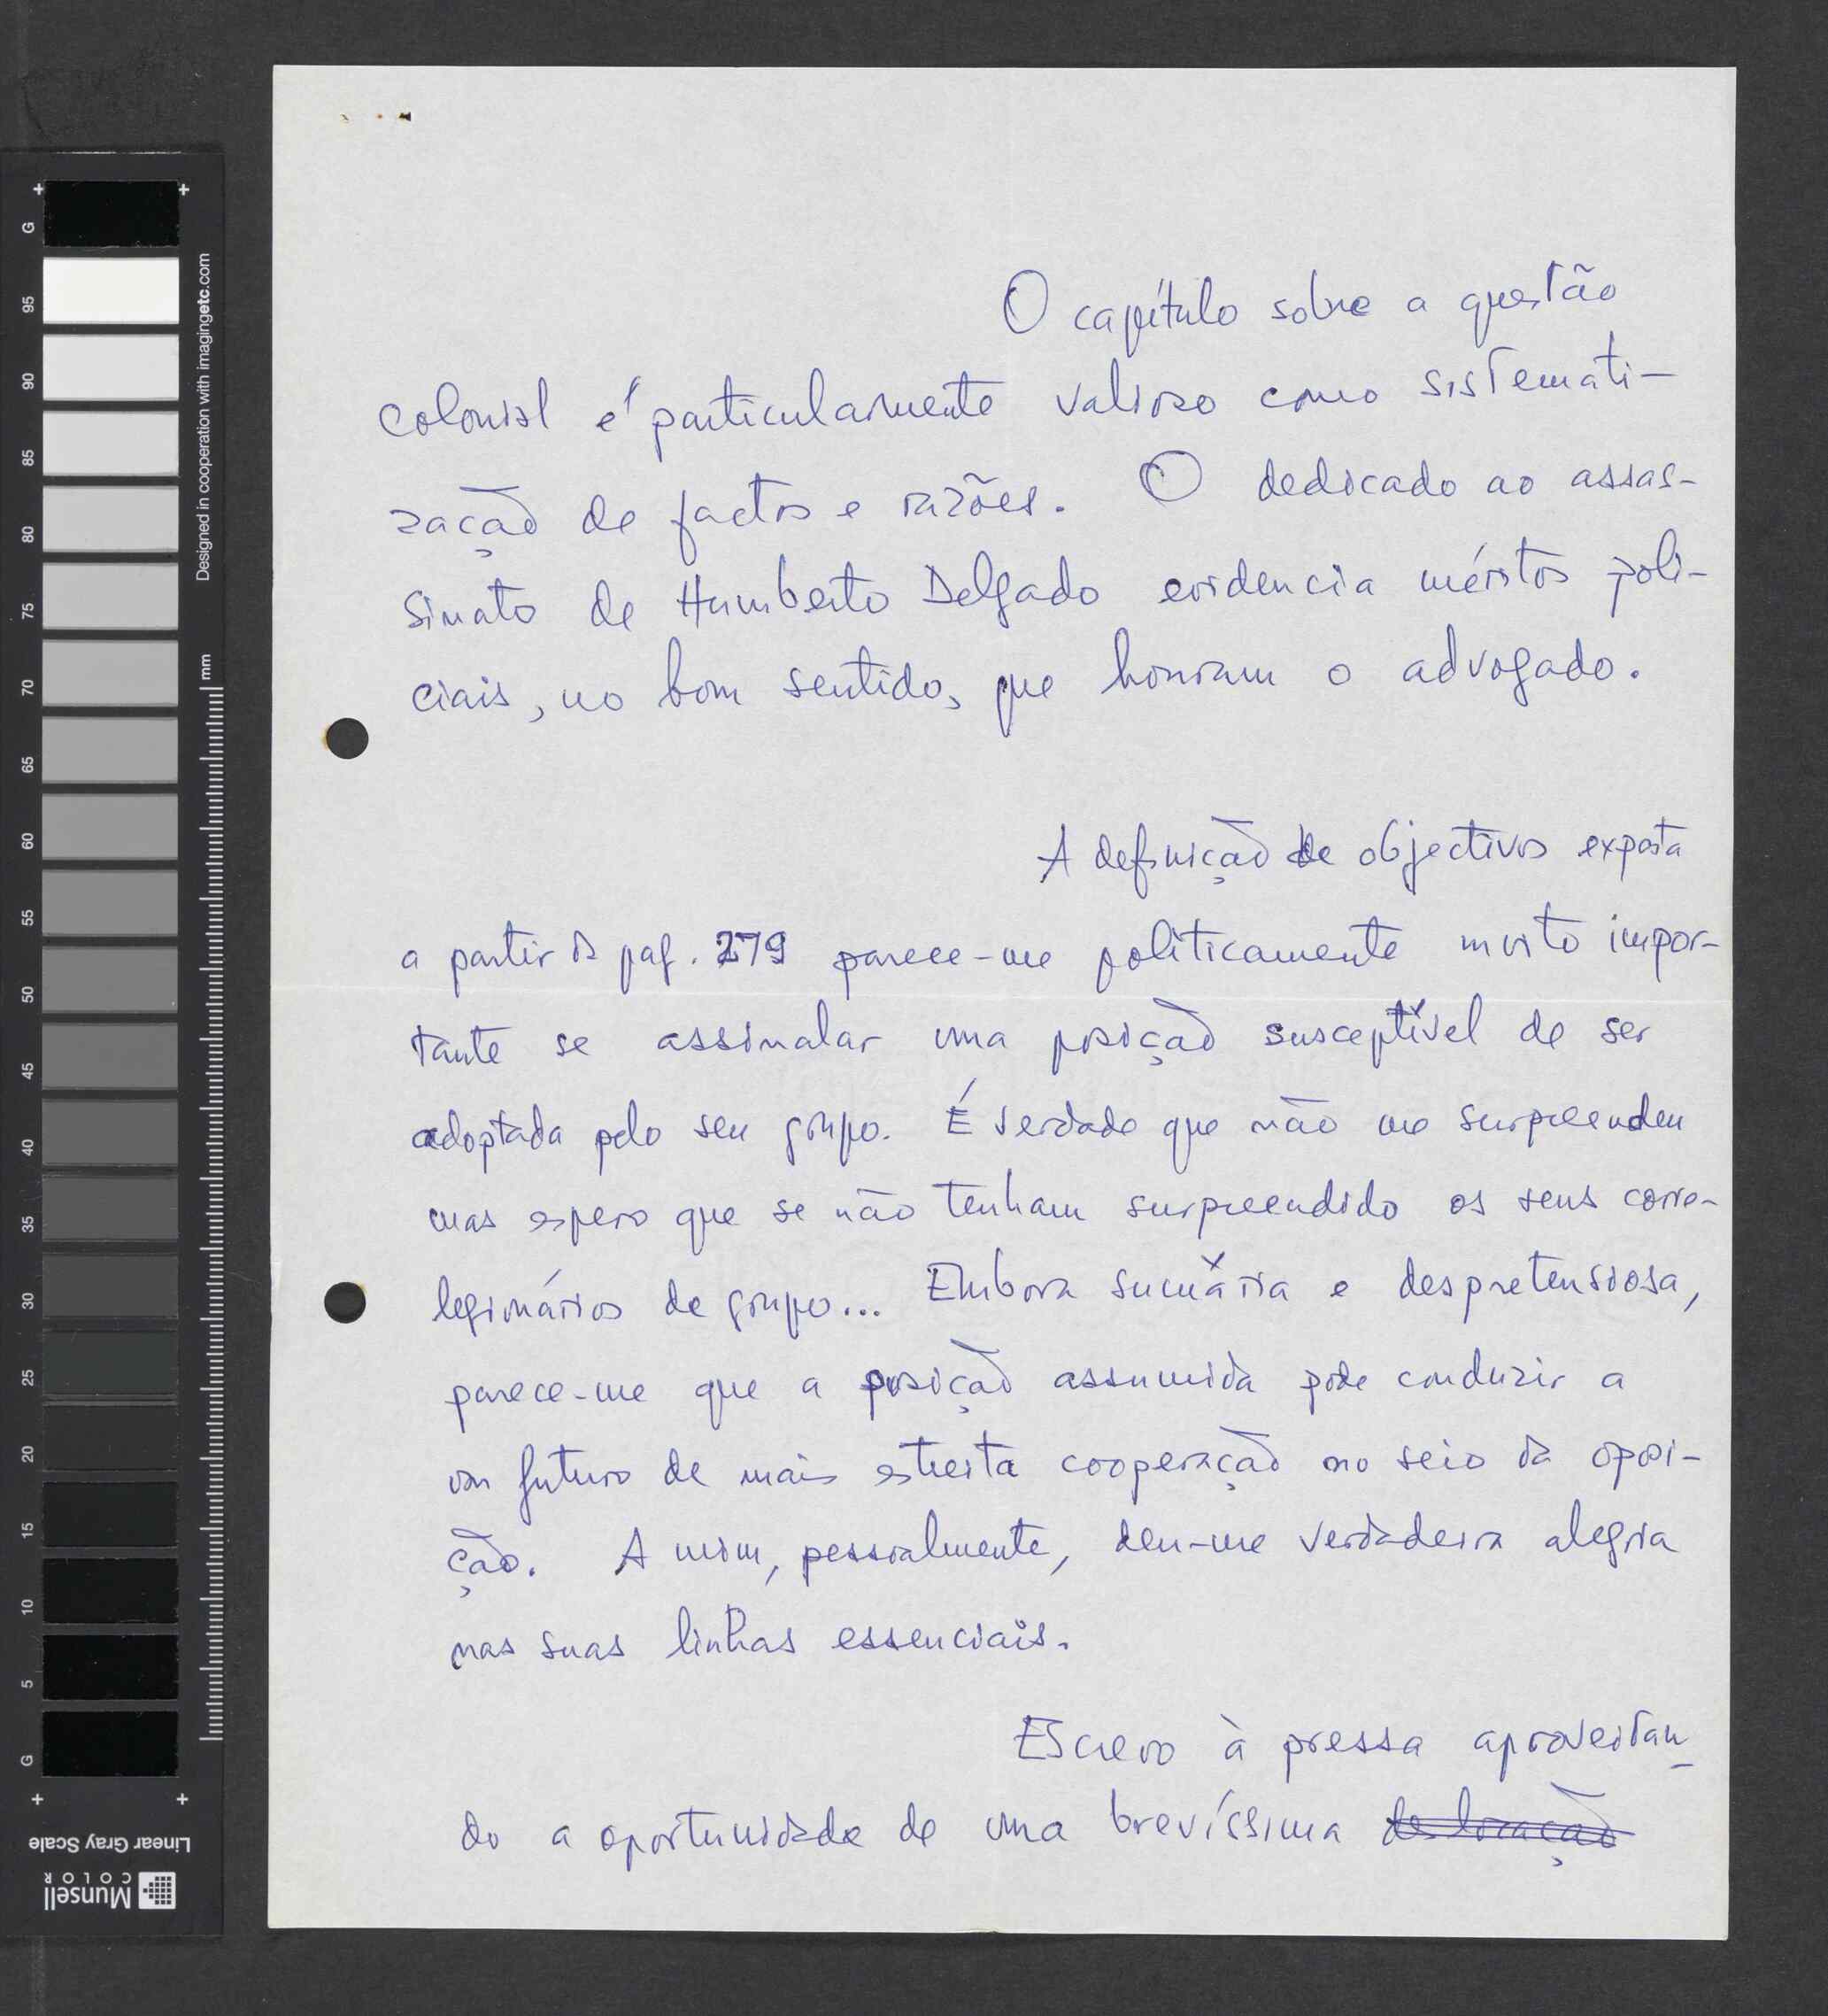 O capítulo sobre a questão
colonial é particularmente valioso como sistemati-
zação de factos e razões. O dedicado ao assas-
sinato de Humberto Delgado evidencia méritos poli-
ciais, no bom sentido, que honram o advogado.
A definição de objectivos exposta
a partir da pag. 279 parece-me politicamente muito impor-
tante se assinalar uma posição susceptível de ser
adoptada pelo seu grupo. É verdade que não me surpreendeu
mas espero que se não tenham surpreendido os seus corre-
legionários de grupo... Embora sumária e despretensiosa,
parece-me que a posição assumida pode conduzir a
um futuro de mais estreita cooperação no seio da oposi-
ção. A mim, pessoalmente, deu-me verdadeira alegria
nas suas linhas essenciais.
Escrevo à pressa aproveitan-
do a oportunidade de uma brevíssima deslocação
G
95
90
85
80
75
70
65
60
55
50
45
40
35
30
25
20
15
10
5
G
Designed in cooperation with imagingetc.com
mm
Linear Gray Scale
Munsell
COLOR